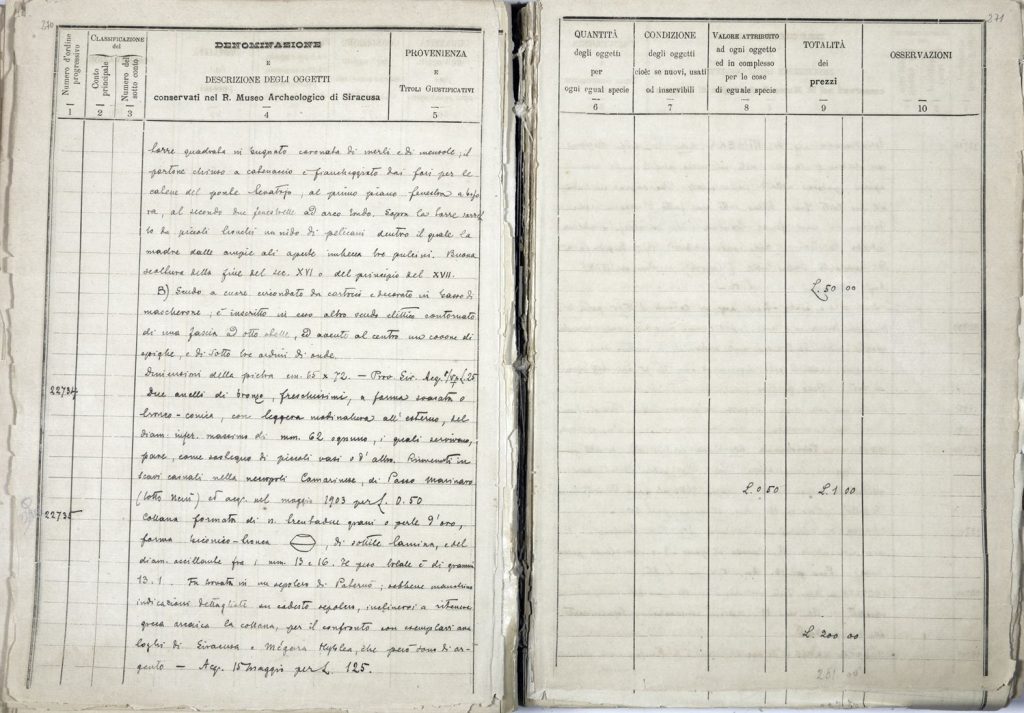 270
Numero d'ordine progressivo
CLASSIFICAZIONE del
Conto principale
Numero del sotto conto
DENOMINAZIONE
E
DESCRIZIONE DEGLI OGGETTI
conservati nel R. Museo Archeologico di Siracusa
PROVENIENZA
E
TITOLI GIUSTIFICATIVI
1 2 3 4 5
torre quadrata in bugnato coronata di merli e di mensole, il
portone chiuso a catenaccio e fiancheggiato dai fori per le
catene del ponte levatojo, al primo piano fenestra a bifo
ra, al secondo due fenestrelle ad arco tondo. Sopra la torre
to da piccoli tronchi un nido di pelicani dentro il quale la
madre dalle ampie ali aperte imbecca tre pulcini. Buona
scultura della fine del sec. XVI o del principio del XVII.
B) Scudo a cuore circondato da cartoccio e decorato in basso di
mascherone, è inscritto in esso altro scudo elittico contornato
di una fascia ad otto stelle, ed avente al centro un covone di
spighe, e di sotto tre ordini di onde.
Dimensioni della pietra cm. 55 x 72. — Prov. Sir. Acq. L. 25
22734
Due anelli di bronzo, freschissimi, a forma svasata o
tronco-conica, con leggera modinatura all'esterno, del
diam. infer. massimo di mm. 62 ognuno, i quali servivano,
pare, come sostegno di piccoli vasi o d'altro. Rinvenuti in
scavi casuali nella necropoli Camarinese, di Passo Marinaro
(lotto ) ed acq. nel maggio 1903 per L. 0.50
22735
Collana formata di n. trentadue grani o perle d'oro,
forma biconico-tronca , di sottile lamina, e del
diam. oscillante fra i mm. 13 e 16. Il peso totale è di grammi
13.1. Fu trovata in un sepolcro di Paternò; sebbene manchino
indicazioni dettagliate su codesto sepolcro, inclinerei a ritenere
greca arcaica la collana, per il confronto con esemplari ana
loghi di Siracusa e Mégara Hyblea, che però sono di ar-
gento — Acq. 15 Maggio per L. 125.
271
QUANTITÀ
degli oggetti
per
ogni egual specie
CONDIZIONE
degli oggetti
cioè: se nuovi, usati
od inservibili
VALORE ATTRIBUITO
ad ogni oggetto
ed in complesso
per le cose
di eguale specie
TOTALITÀ
dei
prezzi
OSSERVAZIONI
6 7 8 9 10
L. 50 00
L. 0 50 L. 1 00
L. 200 00
251 00